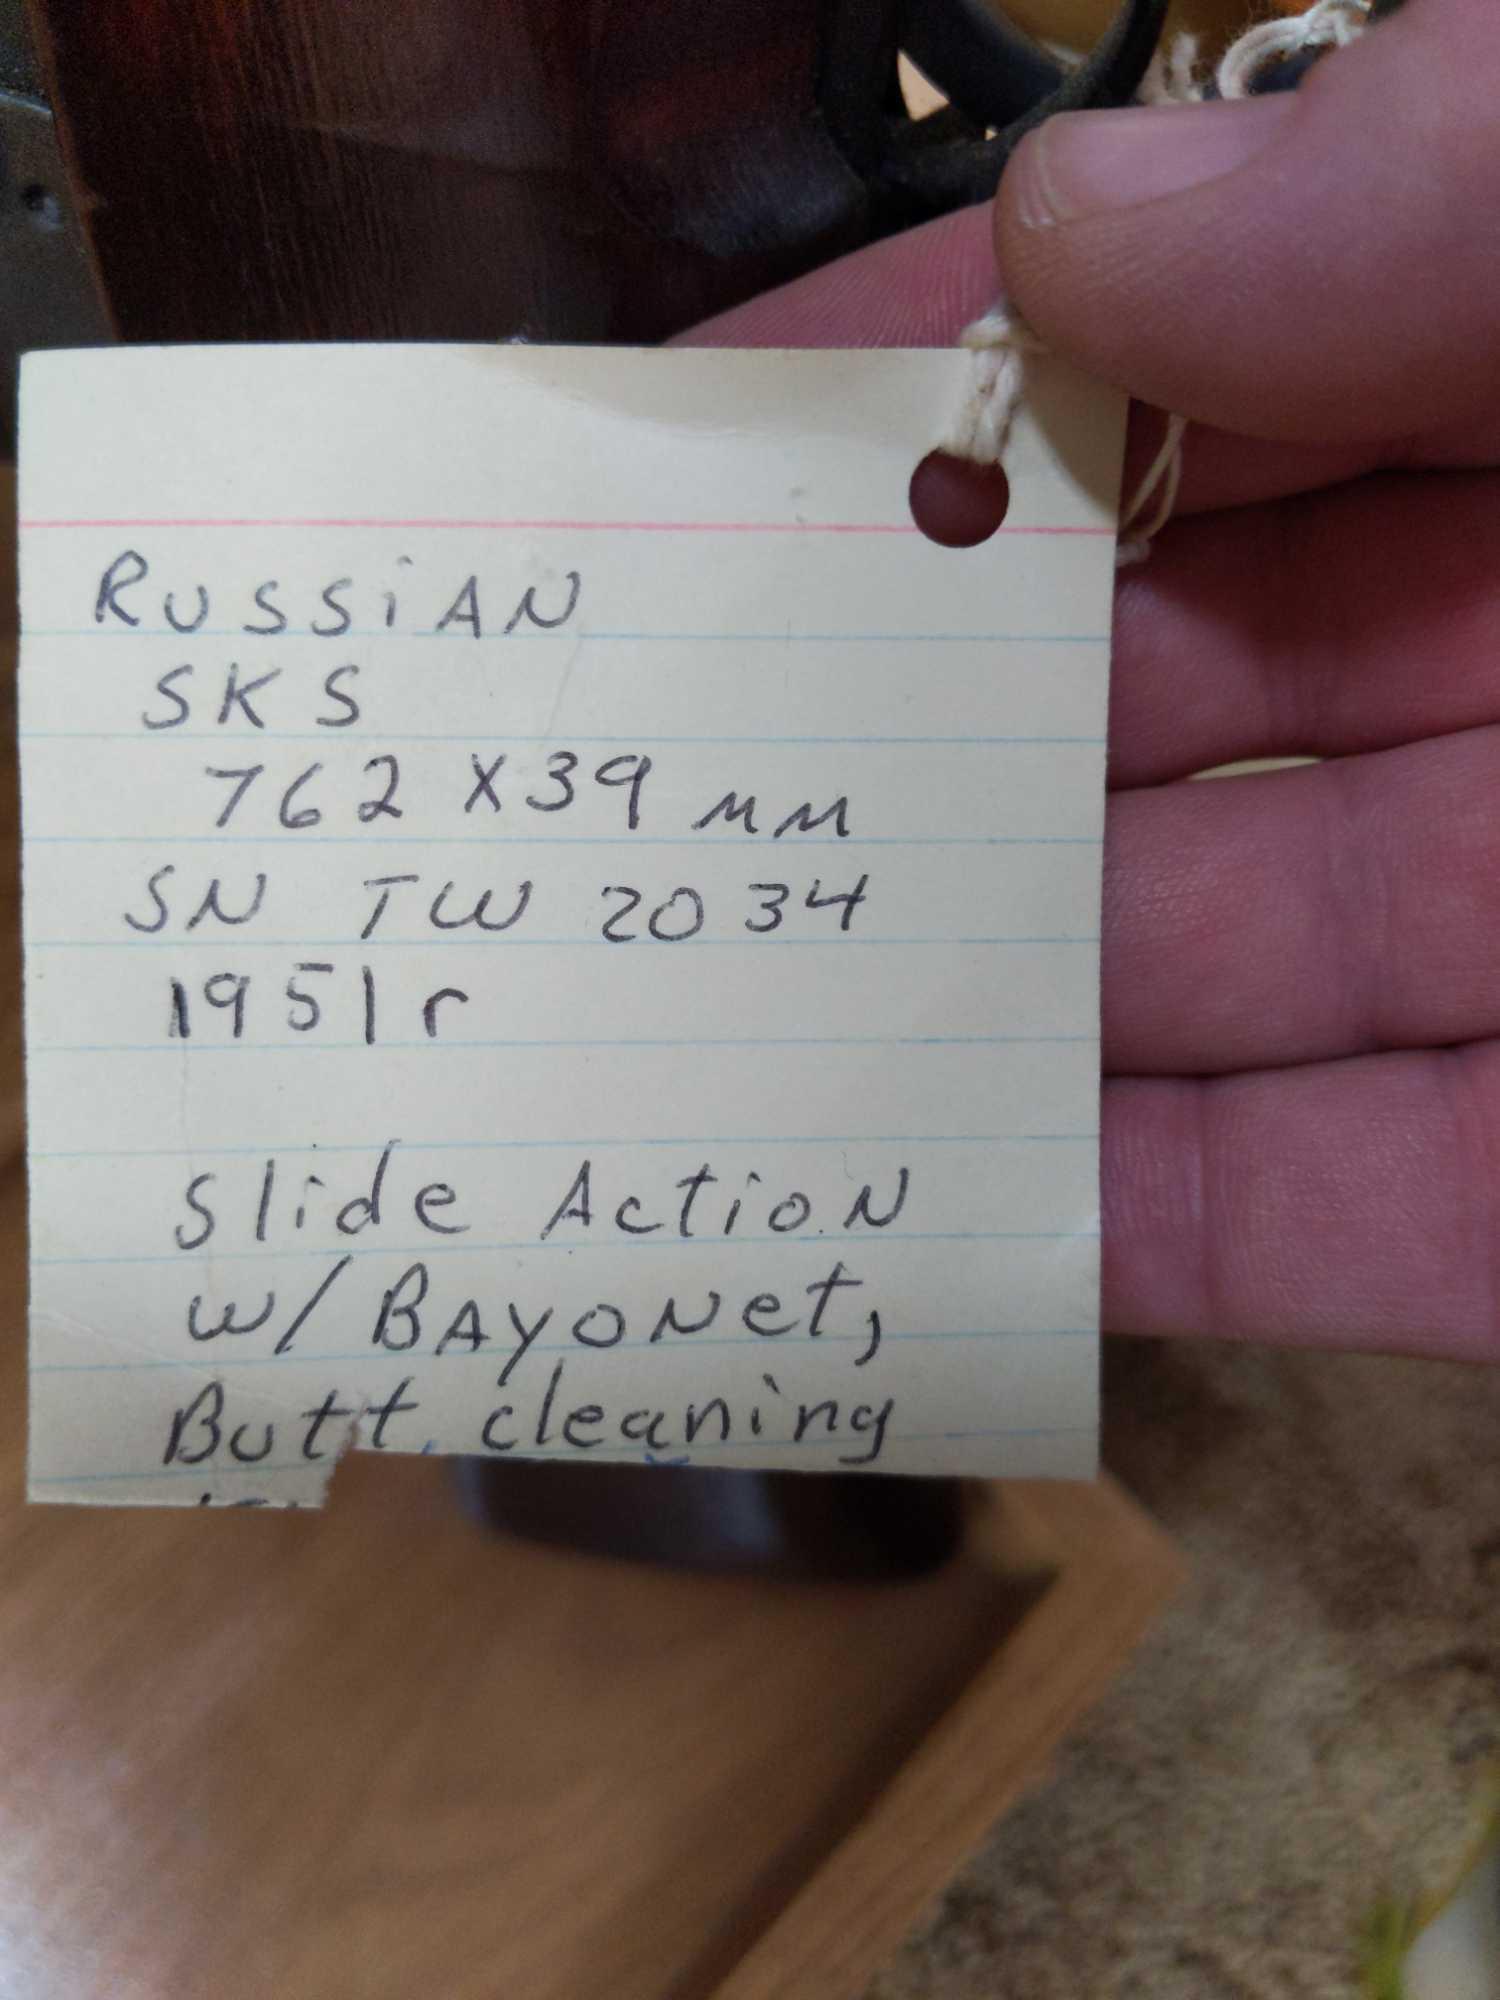 RUSSiAN
SKS
762 X39 MM
SN TW 2034
1951 r
Slide ActioN
w/ BAYONet,
Butt cleaning